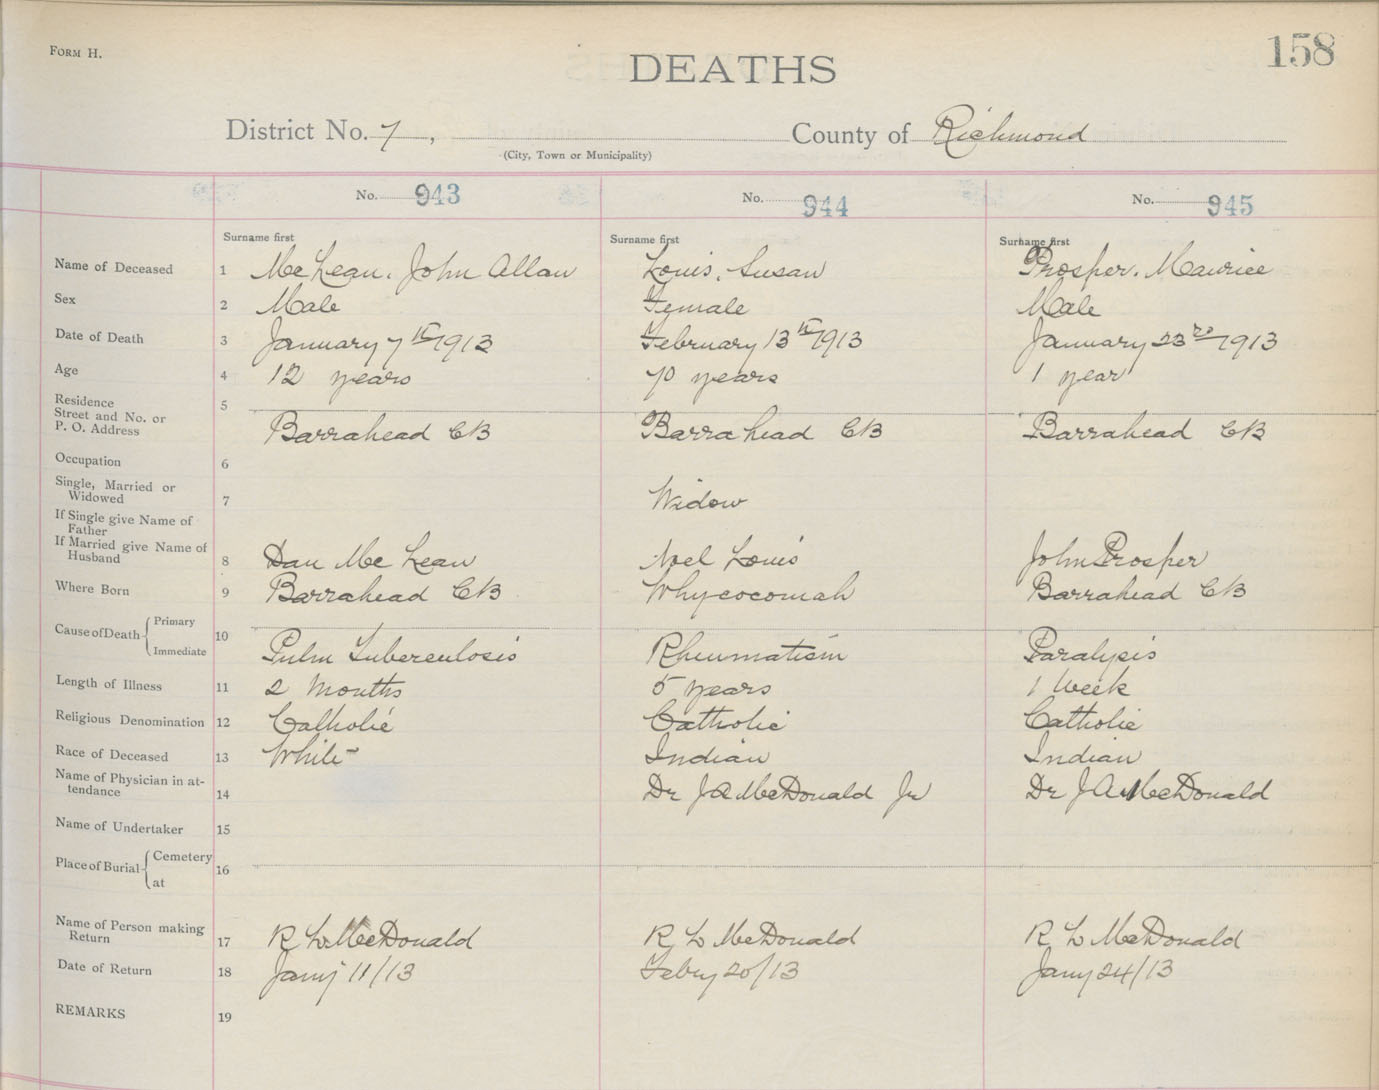 FORM H.
158
DEATHS
District No. 7, County of Richmond
(City, Town or Municipality)
No. 943 No. 944 No. 945
Surname first Surname first Surname first
Name of Deceased 1 McLean, John Allan Louis, Susan Prosper, Maurice
Sex 2 Male Female Male
Date of Death 3 January 7th 1913 February 13th 1913 January 23rd 1913
Age 4 12 years 70 years 1 year
Residence
Street and No. or
P. O. Address 5 Barrahead CB Barrahead CB Barrahead CB
Occupation 6
Single, Married or
Widowed 7 Widow
If Single give Name of
Father
If Married give Name of
Husband 8 Dan McLean Noel Louis John Prosper
Where Born 9 Barrahead CB Whycocomah Barrahead CB
Cause of Death { Primary
Immediate 10 Pulm Tuberculosis Rheumatism Paralysis
Length of Illness 11 2 Months 5 years 1 Week
Religious Denomination 12 Catholic Catholic Catholic
Race of Deceased 13 White Indian Indian
Name of Physician in at-
tendance 14 Dr J A McDonald Jr Dr J A McDonald
Name of Undertaker 15
Place of Burial { Cemetery
at 16
Name of Person making
Return 17 R L McDonald R L McDonald R L McDonald
Date of Return 18 Jany 11/13 Febry 20/13 Jany 24/13
REMARKS 19